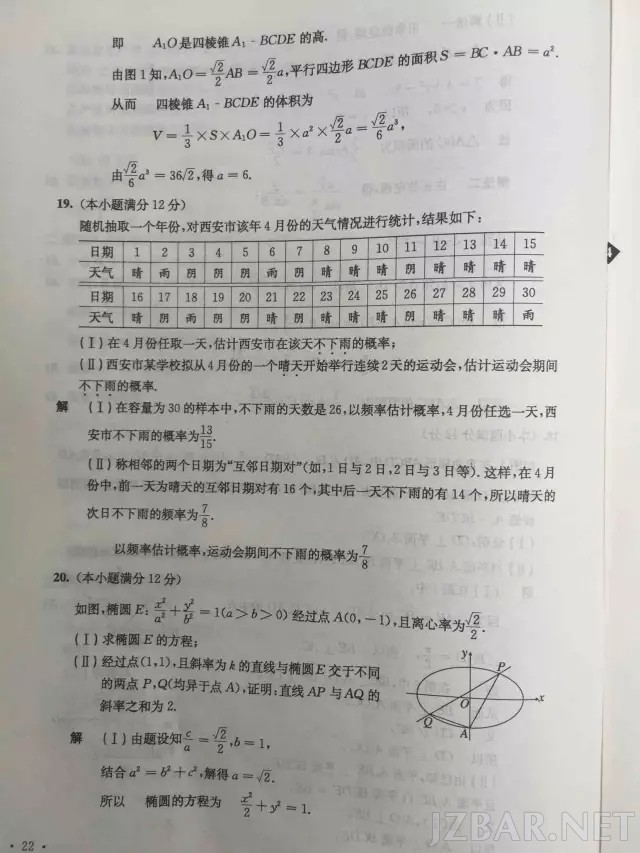 即 A₁O是四棱锥 A₁-BCDE 的高.
由图1知,A₁O=√2/2 AB=√2/2 a,平行四边形 BCDE 的面积 S=BC·AB=a².
从而 四棱锥 A₁-BCDE 的体积为
V=1/3×S×A₁O=1/3×a²×√2/2 a=√2/6 a³,
由√2/6 a³=36√2,得 a=6.
19. (本小题满分12分)
随机抽取一个年份,对西安市该年4月份的天气情况进行统计,结果如下:
日期 1 2 3 4 5 6 7 8 9 10 11 12 13 14 15
天气 晴 雨 阴 阴 阴 雨 阴 晴 晴 晴 阴 晴 晴 晴 晴
日期 16 17 18 19 20 21 22 23 24 25 26 27 28 29 30
天气 晴 阴 雨 阴 阴 晴 阴 晴 晴 晴 阴 晴 晴 晴 雨
(Ⅰ)在4月份任取一天,估计西安市在该天不下雨的概率;
(Ⅱ)西安市某学校拟从4月份的一个晴天开始举行连续2天的运动会,估计运动会期间
不下雨的概率.
解 (Ⅰ)在容量为30的样本中,不下雨的天数是26,以频率估计概率,4月份任选一天,西
安市不下雨的概率为13/15.
(Ⅱ)称相邻的两个日期为“互邻日期对”(如,1日与2日,2日与3日等).这样,在4月
份中,前一天为晴天的互邻日期对有16个,其中后一天不下雨的有14个,所以晴天的
次日不下雨的频率为7/8.
以频率估计概率,运动会期间不下雨的概率为7/8
20. (本小题满分12分)
如图,椭圆E: x²/a²+y²/b²=1(a>b>0)经过点A(0,-1),且离心率为√2/2.
(Ⅰ)求椭圆E的方程;
(Ⅱ)经过点(1,1),且斜率为k的直线与椭圆E交于不同
的两点P,Q(均异于点A),证明:直线AP与AQ的
斜率之和为2.
y
P
O
x
Q
A
解 (Ⅰ)由题设知c/a=√2/2,b=1,
结合a²=b²+c²,解得a=√2.
所以 椭圆的方程为 x²/2+y²=1.
·22·
JZBAR.NET